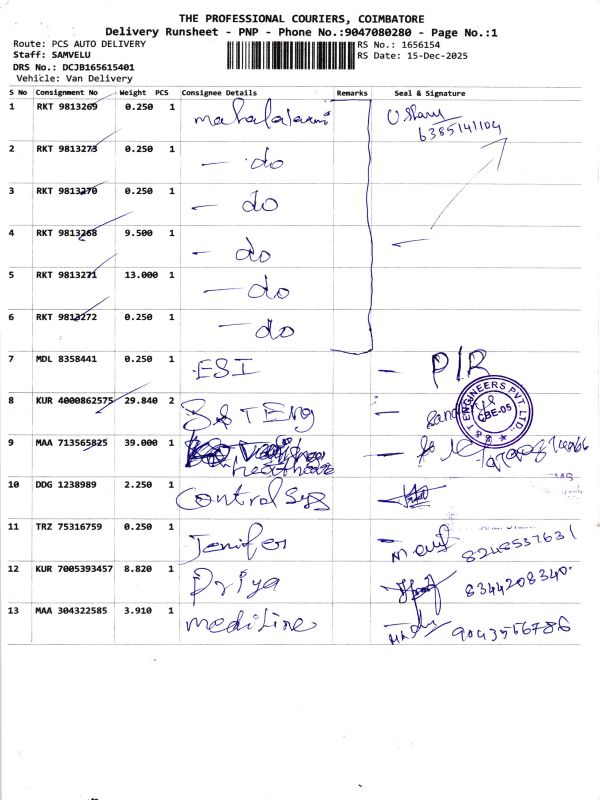 THE PROFESSIONAL COURIERS, COIMBATORE
Delivery Runsheet - PNP - Phone No.:9047080280 - Page No.:1
Route: PCS AUTO DELIVERY
Staff: SAMVELU
DRS No.: DCJB165615401
Vehicle: Van Delivery
RS No.: 1656154
RS Date: 15-Dec-2025
S No Consignment No Weight PCS Consignee Details Remarks Seal & Signature
1 RKT 9813269 0.250 1 mahalaxmi
6385141104
2 RKT 9813273 0.250 1 — do
3 RKT 9813270 0.250 1 — do
4 RKT 9813268 9.500 1 — do
5 RKT 9813271 13.000 1 — do
6 RKT 9813272 0.250 1 — do
7 MDL 8358441 0.250 1 ESI — PIR
8 KUR 4000862575 29.840 2 S&T ENG —
S & T ENGINEERS PVT. LTD. CBE-05
9 MAA 713565825 39.000 1 healthcare —
10 DDG 1238989 2.250 1 Control sys —
11 TRZ 75316759 0.250 1 Jenifer — 8248537631
12 KUR 7005393457 8.820 1 Priya 8344208340.
13 MAA 304322585 3.910 1 mediline 9043556786